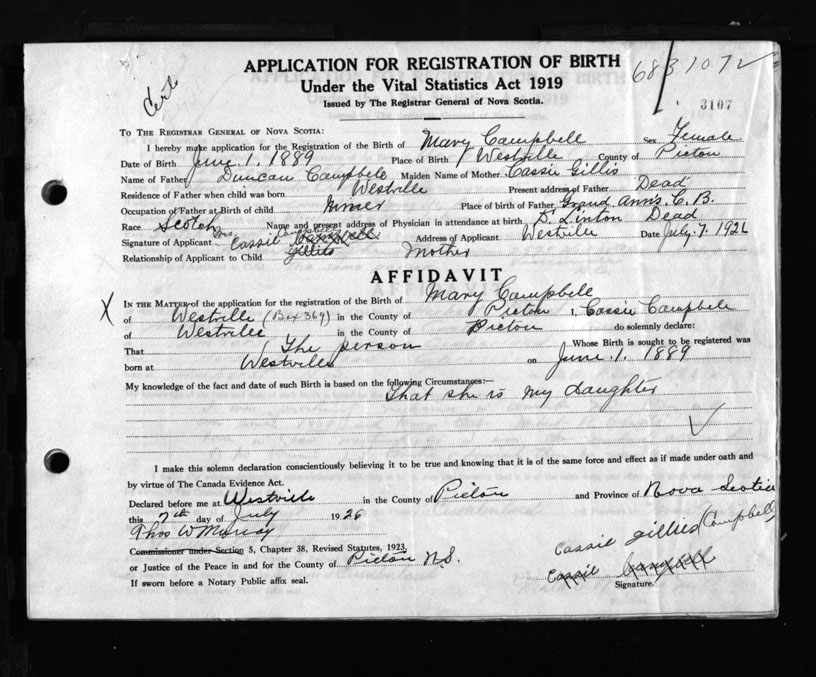 APPLICATION FOR REGISTRATION OF BIRTH
Under the Vital Statistics Act 1919
Issued by The Registrar General of Nova Scotia.
Cert
6831072
3107
TO THE REGISTRAR GENERAL OF NOVA SCOTIA:
I hereby make application for the Registration of the Birth of Mary Campbell Sex Female
Date of Birth June. 1. 1889 Place of Birth Westville County of Pictou
Name of Father Duncan Campbell Maiden Name of Mother Cassie Gillis
Residence of Father when child was born Westville Present address of Father Dead
Occupation of Father at Birth of child Miner Place of birth of Father Grand Anns. C. B.
Race Scotch Name and present address of Physician in attendance at birth D. Linton Dead
Signature of Applicant Mrs. Cassie Campbell Gillits Address of Applicant Westville Date July. 7. 1926
Relationship of Applicant to Child Mother
AFFIDAVIT
X IN THE MATTER of the application for the registration of the Birth of Mary Campbell
of Westville (Box 369) in the County of Pictou I, Cassie Campbell
of Westville in the County of Pictou do solemnly declare:
That The person Whose Birth is sought to be registered was
born at Westville on June. 1. 1889
My knowledge of the fact and date of such Birth is based on the following Circumstances:—
That she is my daughter
I make this solemn declaration conscientiously believing it to be true and knowing that it is of the same force and effect as if made under oath and
by virtue of The Canada Evidence Act.
Declared before me at Westville in the County of Pictou and Province of Nova Scotia
this 7th day of July 1926
Thos W Murray
Commissioner under Section 5, Chapter 38, Revised Statutes, 1923,
or Justice of the Peace in and for the County of Pictou N.S.
If sworn before a Notary Public affix seal.
Cassie gillies (Campbell)
Cassie Campbell
Signature.